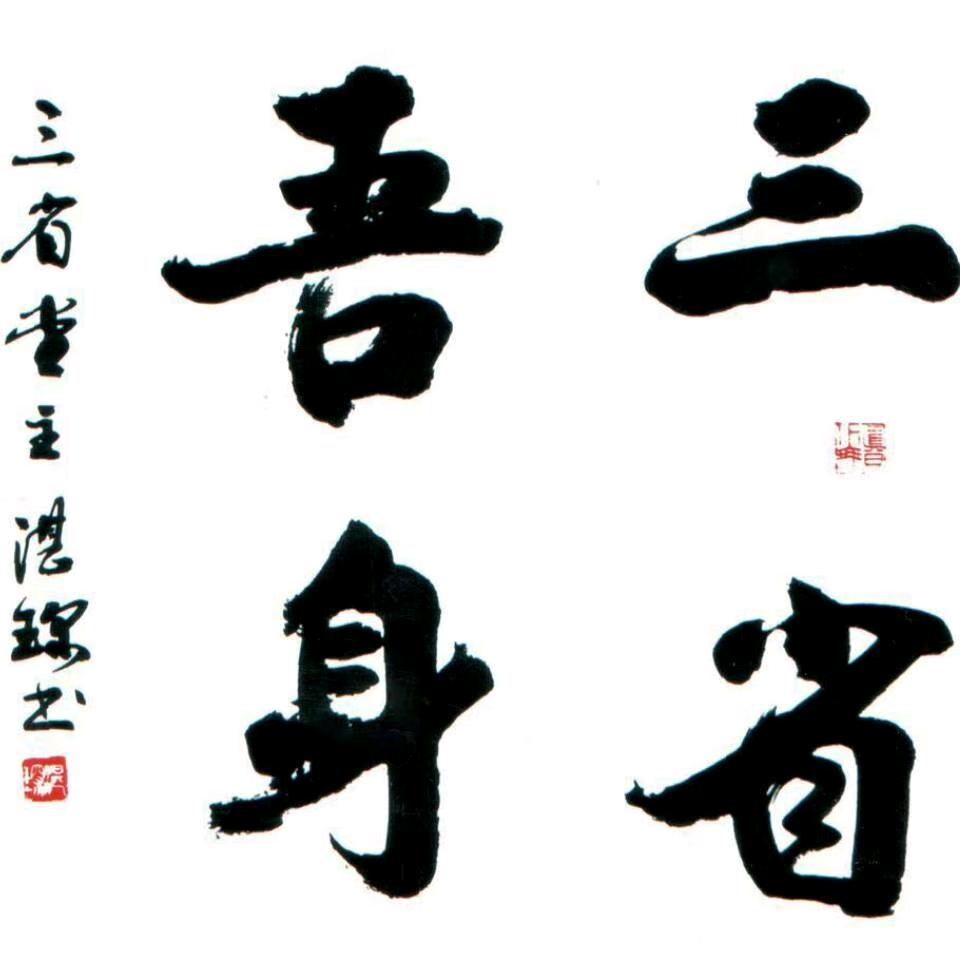 三省
吾身
三省堂主湛㴱书